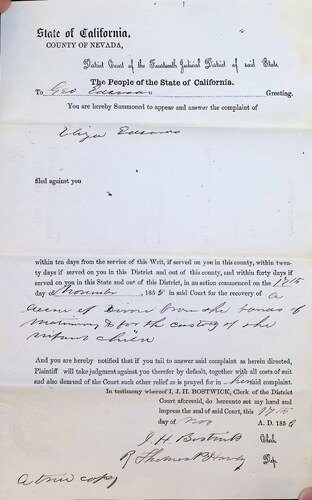 State of California,
COUNTY OF NEVADA,
District Court of the Fourteenth Judicial District of said State.
The People of the State of California.
To Geo Greeting.
You are hereby Summoned to appear and answer the complaint of
Eliza
filed against you
within ten days from the service of this Writ, if served on you in this county, within twen-
ty days if served on you in this District and out of this county, and within forty days if
served on you in this State and out of this District, in an action commenced on the 17th
day of November, 1855 in said Court for the recovery of a
decree of Divorce from the bonds of
matrimony & for the custody of the
infant child
And you are hereby notified that if you fail to answer said complaint as herein directed,
Plaintiff will take judgment against you therefor by default, together with all costs of suit
and also demand of the Court such other relief as is prayed for in her said complaint.
In testimony whereof I, J. H. BOSTWICK, Clerk of the District
Court aforesaid, do hereunto set my hand and
impress the seal of said Court, this 17th
day of Nov A. D. 185
J. H. Bostwick Clerk.
Dep.
A true copy